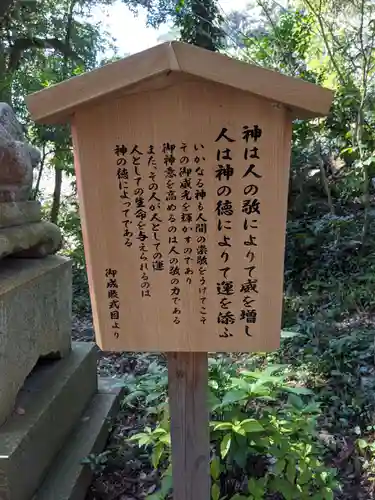 神は人の敬によりて威を増し
人は神の徳によりて運を添ふ
いかなる神も人間の崇敬をうけてこそ
その御威光を輝かすのは人の敬の力である
また、その人としての運
人としての生命を与えられるのは
神の徳によってである
御成敗式目より